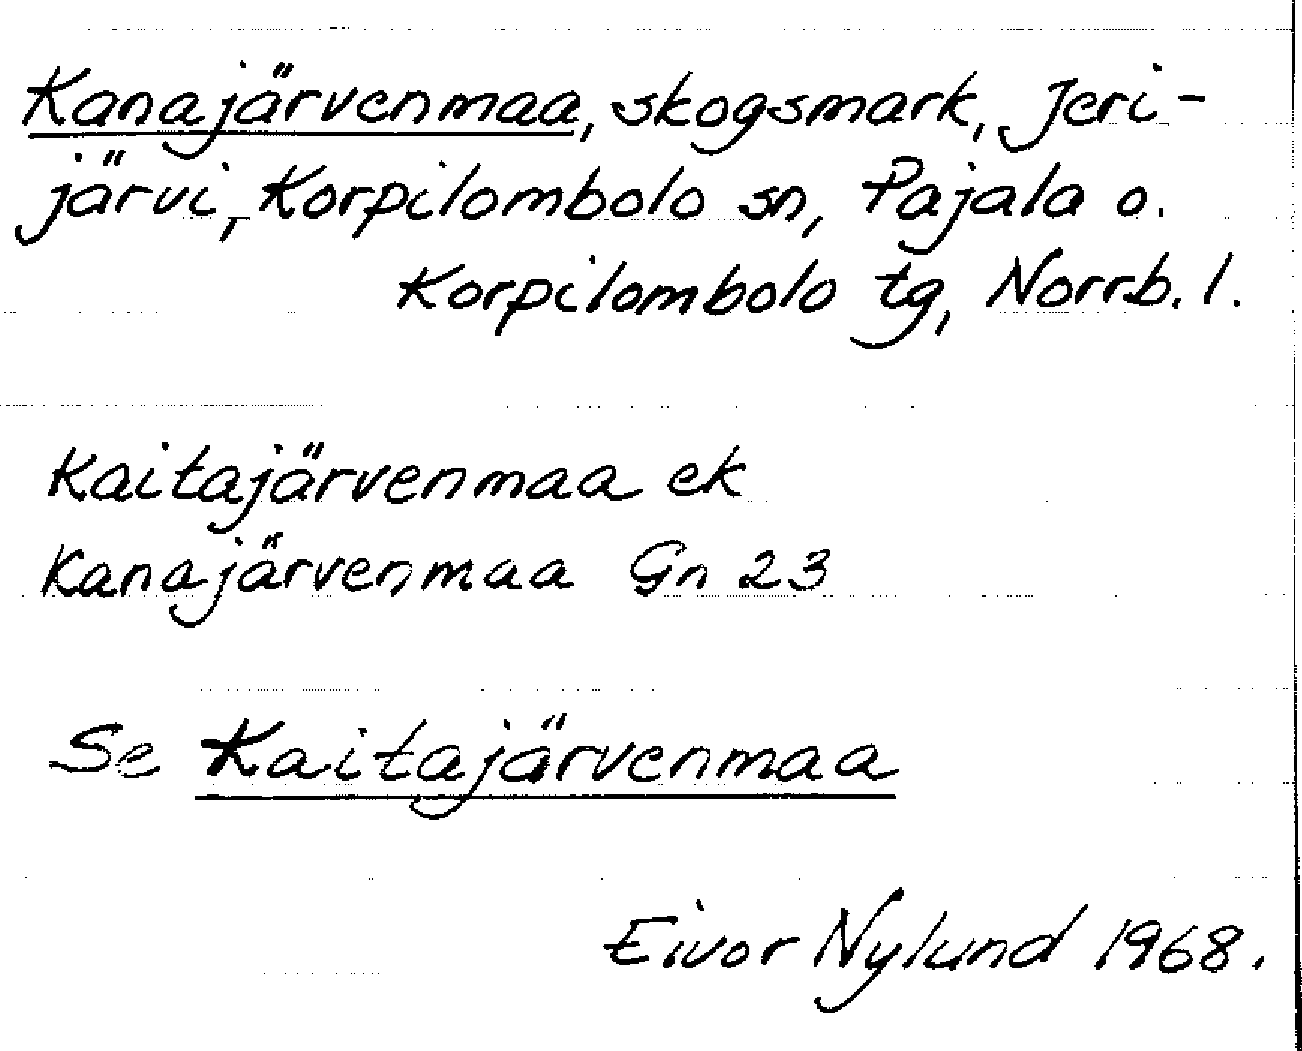 Kanajärvenmaa, skogsmark, Jeri-
järvi, Korpilombolo sn, Pajala o.
Korpilombolo tg, Norrb. l.
Kaitajärvenmaa ek
Kanajärvenmaa Gn 23
Se Kaitajärvenmaa
Eivor Nylund 1968.